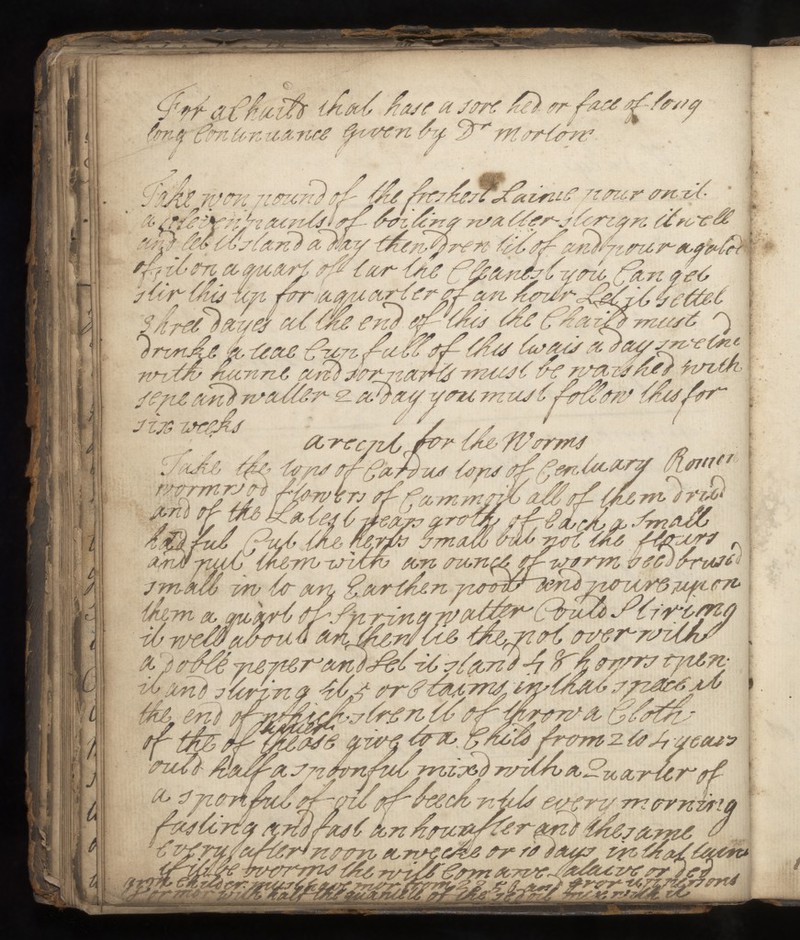 For a Chaild that hase a sore hed or face of long
long Continuance Given by Dr Morton
Take won pound of the freshest Laime pour on it
a eleven paints of boiling watter stirign it well
and let it stand a day then dren tit of and pour
of it on a quart of tar the Cleanest you Can get
stir this up for a quarter of an hour Let it settel
3 hree dayes at the end of this the Chaild must
drinke a teae Cup full of this twais a day
with hunne and sor parts must be waished with
sepe and watter 2 a day you must follow this for
six weeks
a recpt for the Worms
Take the tops of Cardus tops of Centuary Romen
wormwod flowers of Cammoil all of them dried
and of the Latest years groth of Each a small
hadful Cut the herbs small but not the flours
and put them with an ounce of worm seed brused
small in to an Earthen poot and poure upon
them a quart of Spring watter Could Stiring
it well about an then tie the pot over with
a doble peper and Let it stand 48 howrs open
it and stiring it 5 or 6 taims in that space at
the end of which stren it of throw a Cloth
of the of thease give to a Child from 2 to 4 years
ould half a spoonful mixd with a Quarter of
a sponful of oil of beech nuts every morning
fasting and fast an hour after and the same
Every after noon a weeke or 10 days in that
if be worms the will Com awe alaive or ded